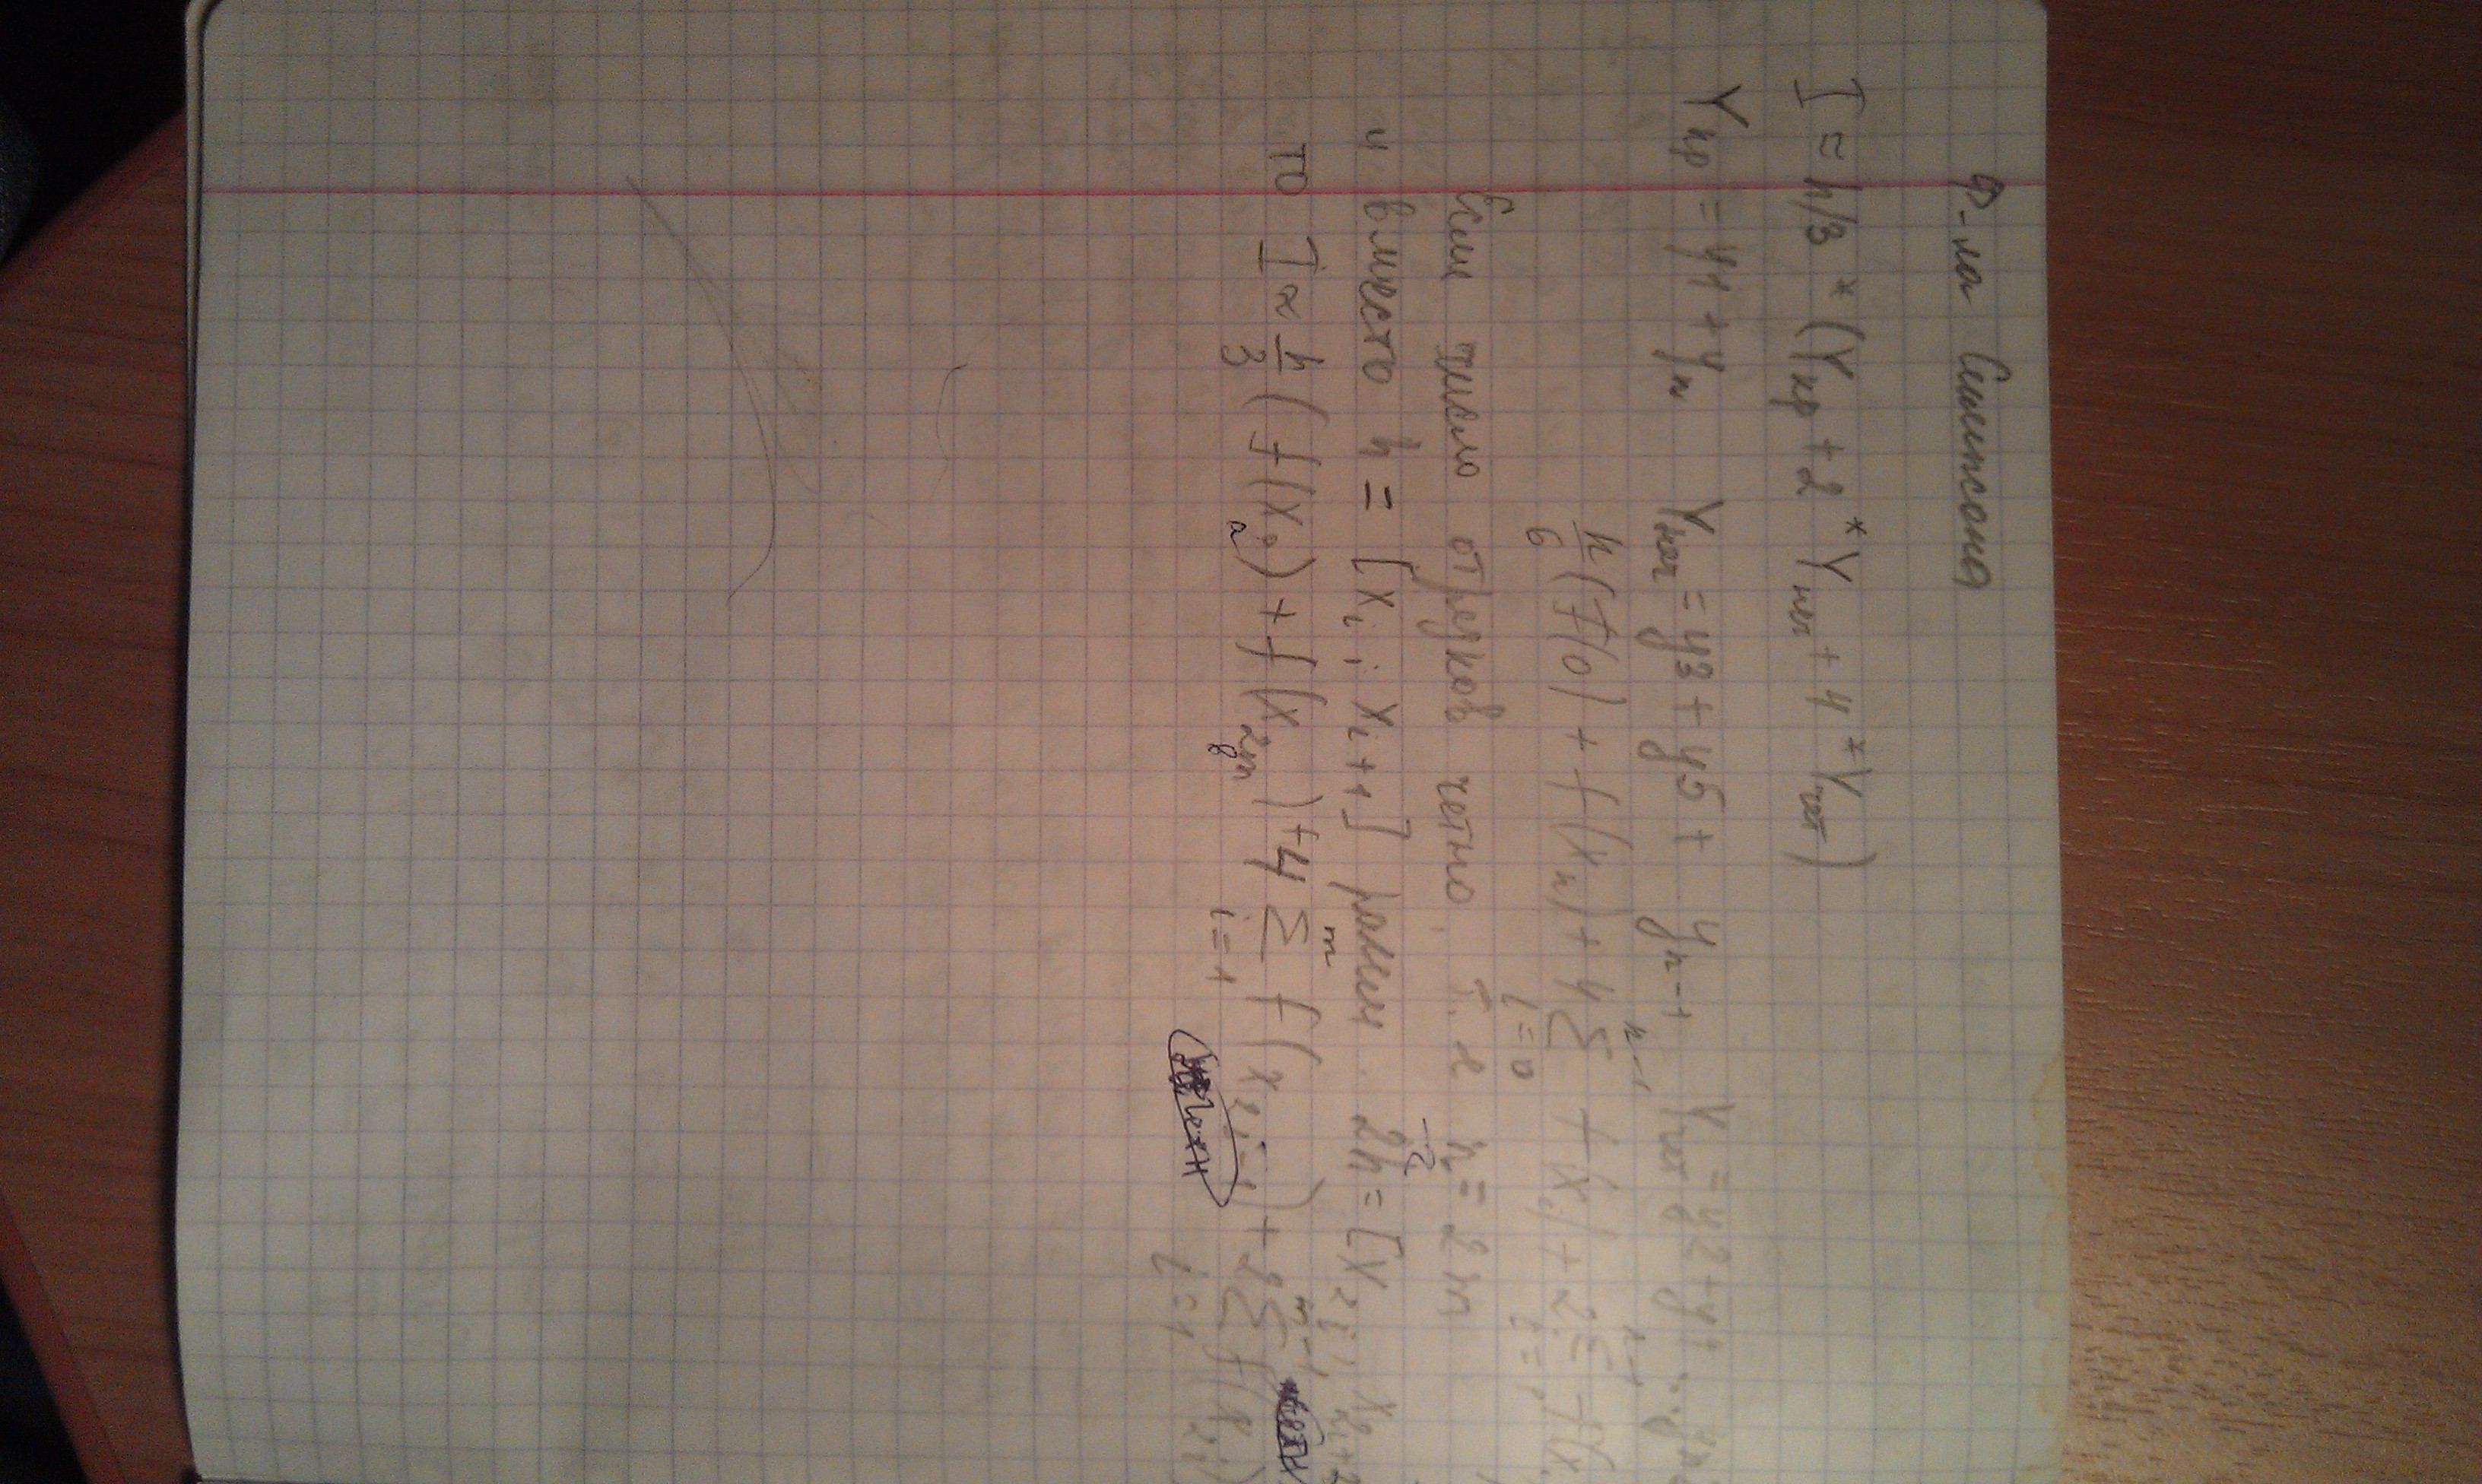 Ф-ла Симпсона
I ≈ h/3 * (Yкр + 2 * Yнеч + 4 * Yчет)
Yкр = y1 + yn Yнеч = y3 + y5 + yn-1 Yчет = y2 + y4
h/6 (f(0) + f(xn) + 4 Σ i=0 n-1 + 2 Σ i=1 n-1
Если число отрезков четно, т. е n = 2m
и вместо h = [xi ; xi+1] равен. 2h = [x2i ; x2i+2
то I ≈ h/3 (f(x0) + f(x2m) + 4 Σ i=1 m f(x2i-1) + 2 Σ i=1 m-1 f(x2i)
a в
нечетн
четн